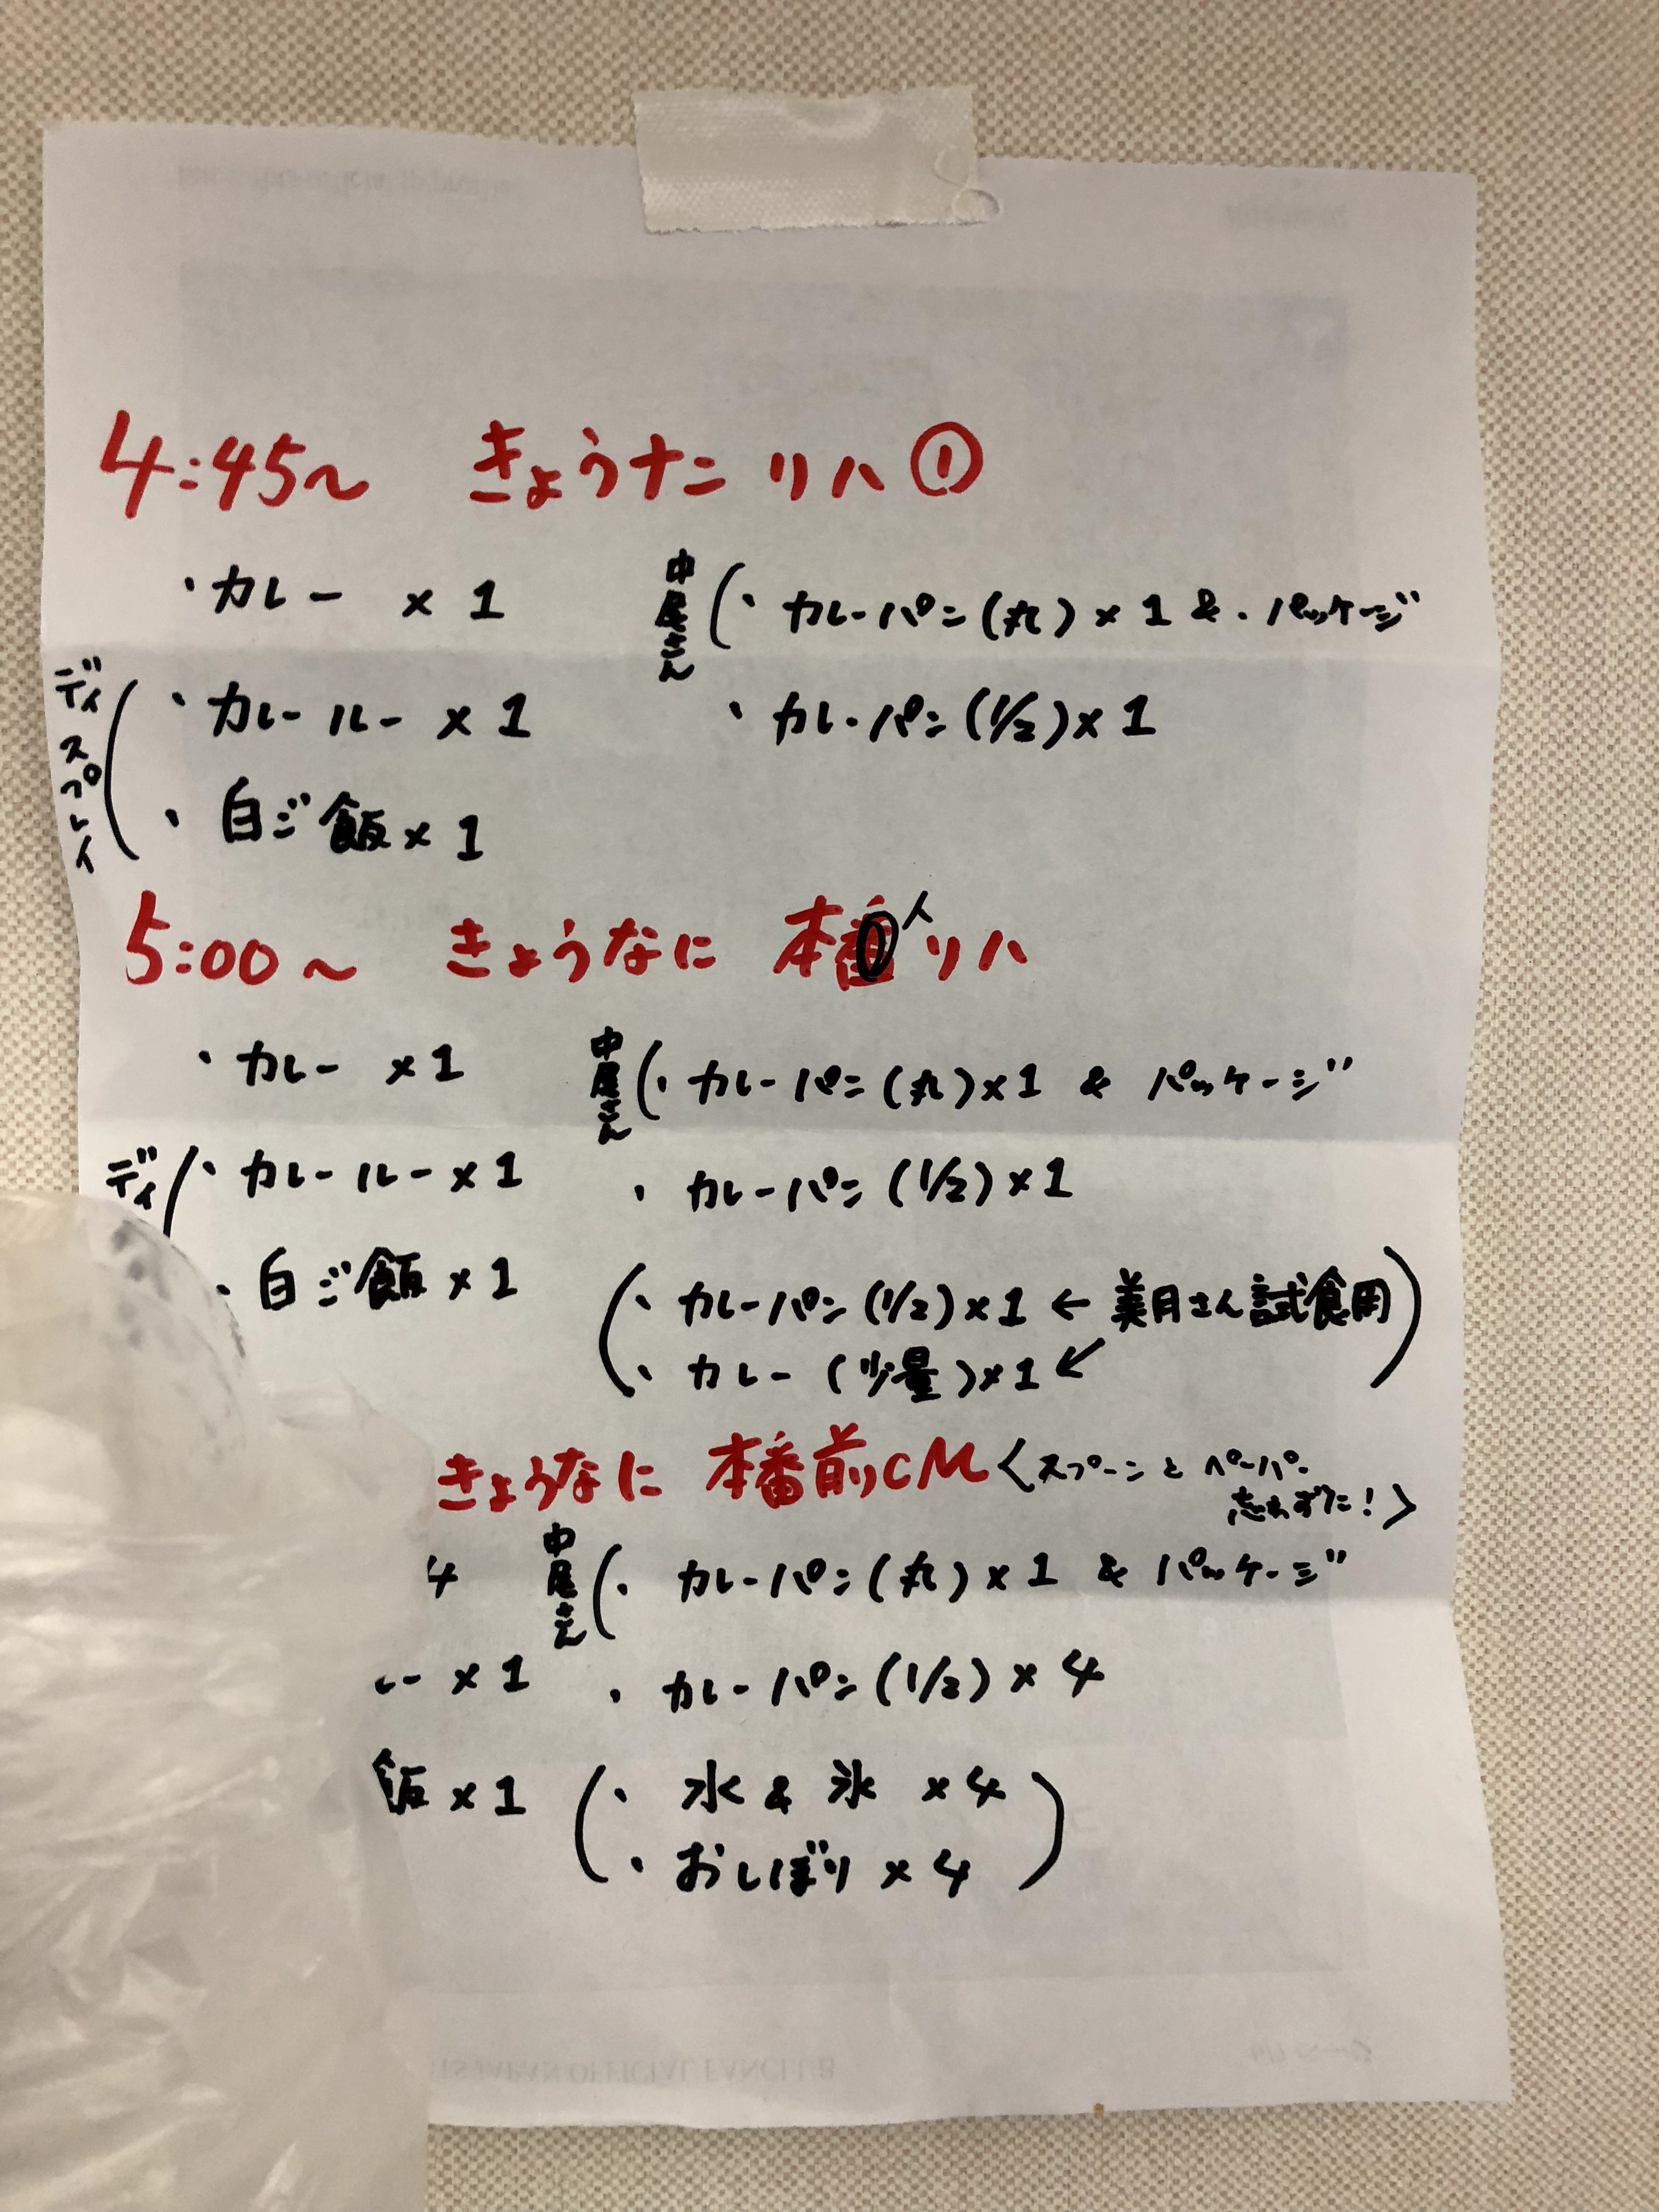 4:45～ きょうナニ リハ①
・カレー ×1
ディスプレイ
・カレールー×1
・白ご飯×1
中尾さん
・カレーパン(丸)×1 &・パッケージ
・カレーパン(1/2)×1
5:00～ きょうなに 本人リハ
・カレー ×1
ディ
・カレールー×1
・白ご飯×1
中尾さん
・カレーパン(丸)×1 & パッケージ
・カレーパン(1/2)×1
・カレーパン(1/2)×1 ← 美月さん試食用
・カレー(少量)×1 ↙
きょうなに 本番前CM〈スプーンとペーパー
忘れずに!〉
4
ー×1
飯×1
中尾さん
・カレーパン(丸)×1 & パッケージ
・カレーパン(1/2)×4
・水&氷 ×4
・おしぼり×4